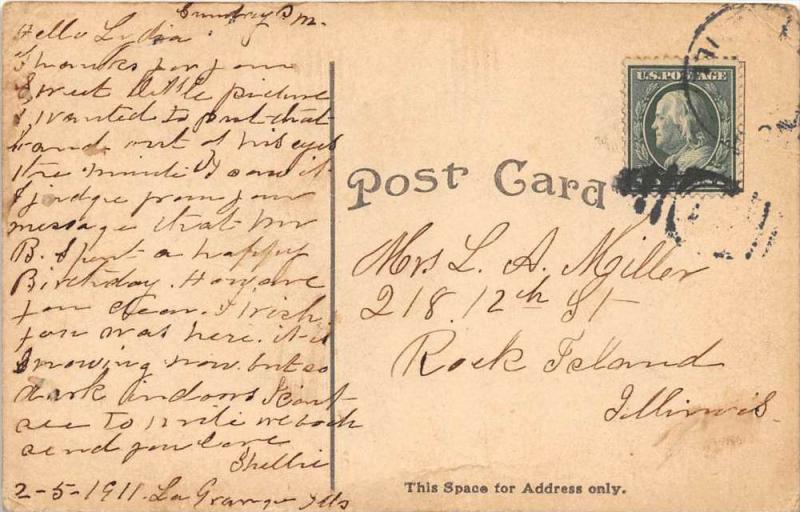 Sunday P M.
Hello Lydia
Thanks for your
Sweet little picture
I wanted to put that
hand out of his eyes
the minute I saw it
I judge from your
message that Mr
B. Spent a happy
Birthday. How are
you dear. I wish
you was here. it is
Snowing now. but so
dark indoors I cant
see to write we both
send you love
Shellie
2-5-1911. La Grange Ills
U.S. POSTAGE
Post Card
Mrs L. A. Miller
218. 12th St
Rock Island
Illinois.
This Space for Address only.